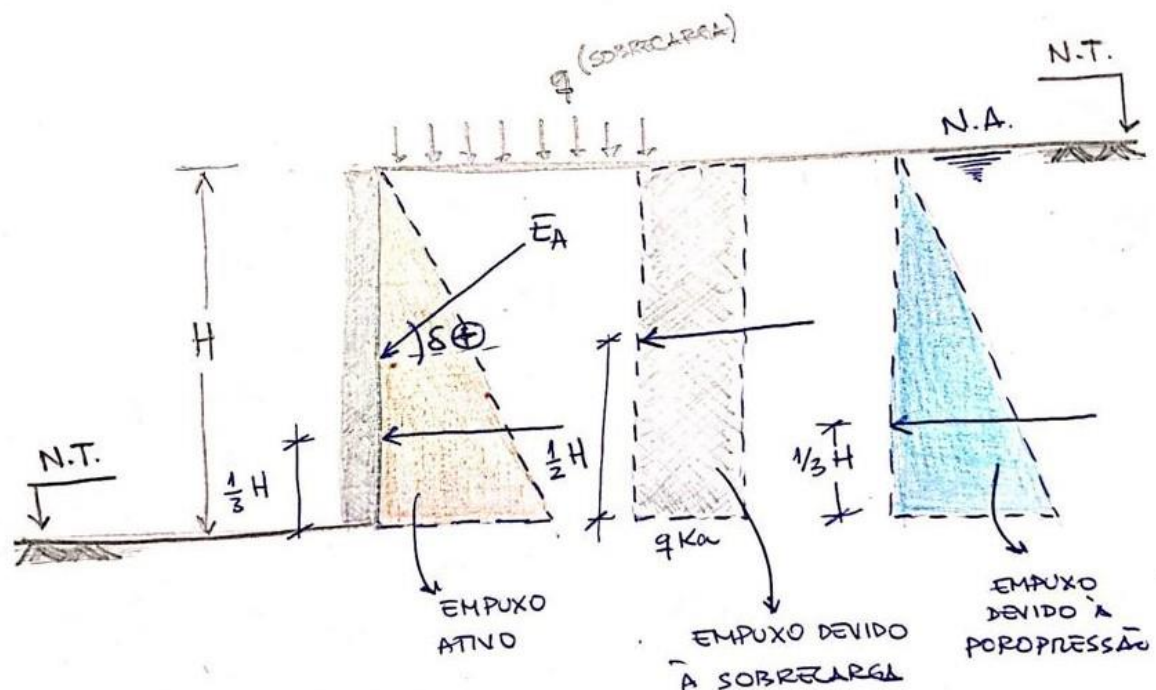 q (SOBRECARGA)
N.T.
N.A.
EA
δ ⊕
H
N.T.
1/3 H
1/2 H
1/3 H
qKa
EMPUXO
ATIVO
EMPUXO DEVIDO
À SOBRECARGA
EMPUXO
DEVIDO À
POROPRESSÃO